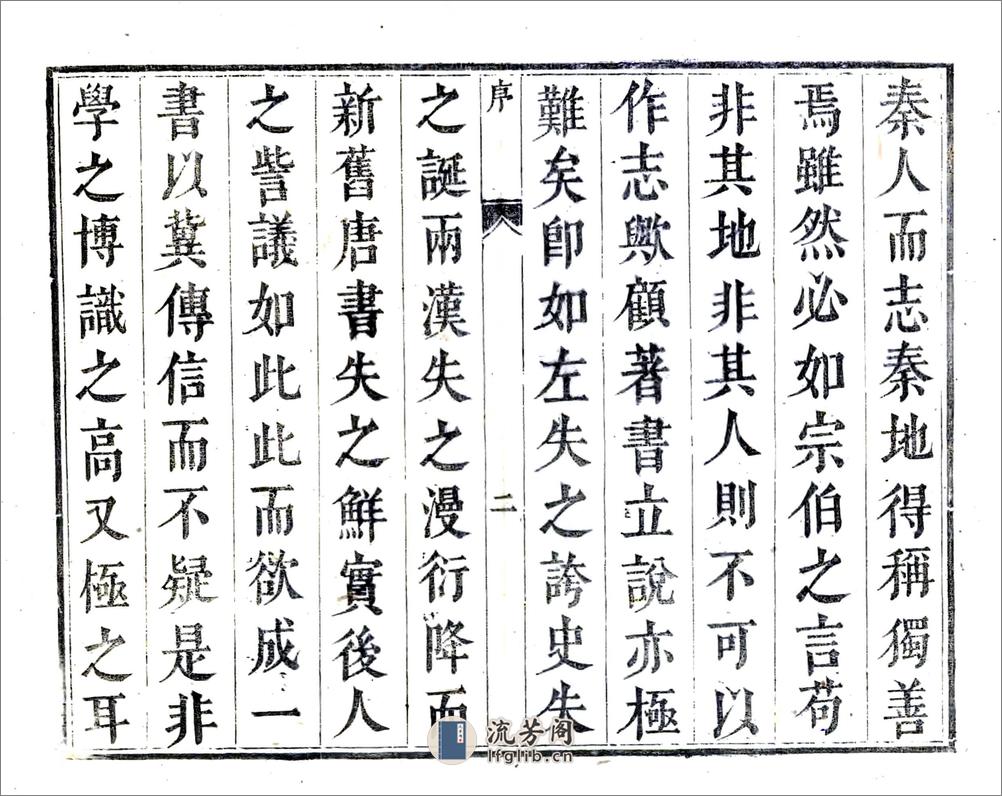 秦人而志秦地得稱獨善
焉雖然必如宗伯之言苟
非其地非其人則不可以
作志歟顧著書立說亦極
難矣卽如左失之誇史失
序
二
之誕兩漢失之漫衍降而
新舊唐書失之鮮實後人
之訾議如此此而欲成一
書以冀傳信而不疑是非
學之博識之高又極之耳
流芳阁
lfglib.cn